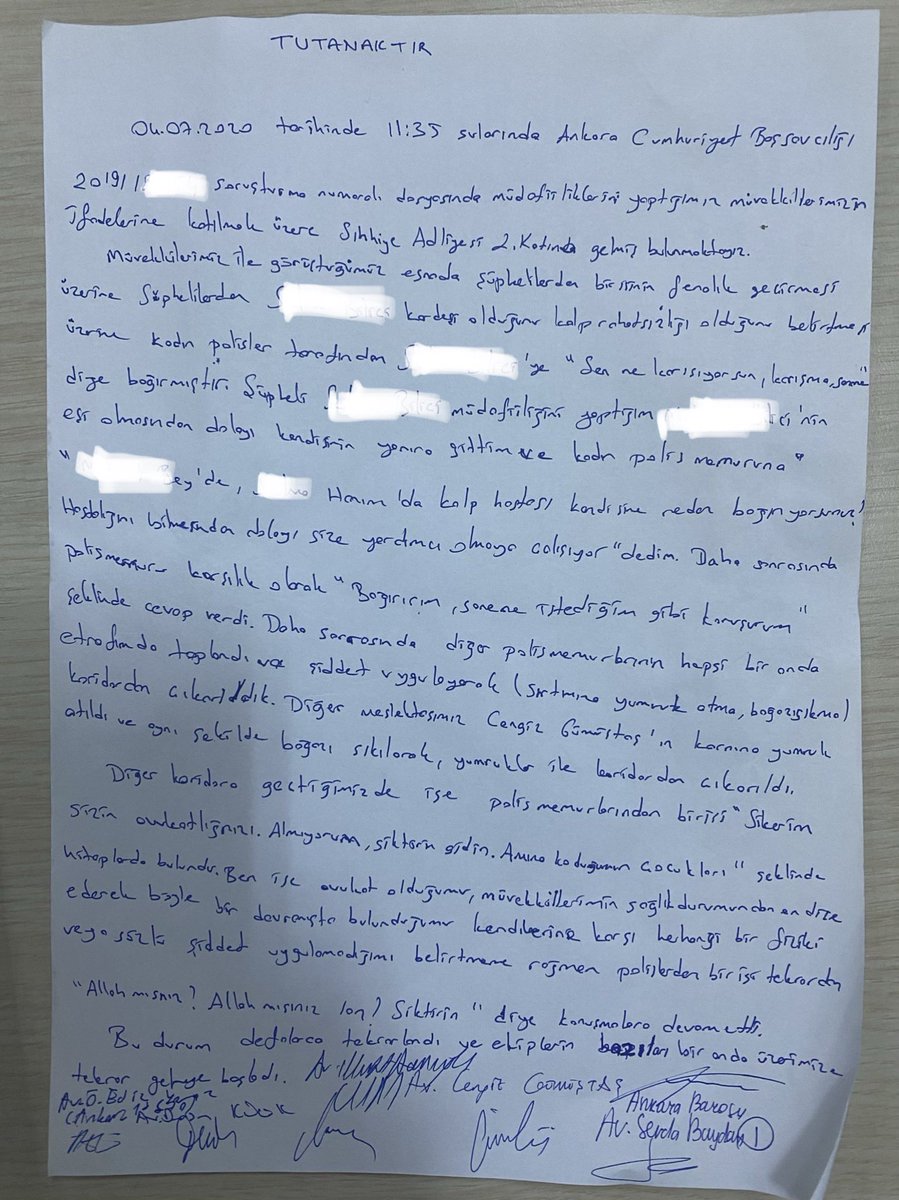 TUTANAKTIR
04.07.2020 tarihinde 11:35 sularında Ankara Cumhuriyet Başsavcılığı
2019/1 soruşturma numaralı dosyasında müdafiiliklerini yaptığımız müvekkillerimizin
İfadelerine katılmak üzere Sıhhiye Adliyesi 2. Katında gelmiş bulunmaktayız.
Müvekkilerimiz ile görüştüğümüz esnada şüphelilerden birisinin fenalık geçirmesi
üzerine şüphelilerden S kardeşi olduğunu kalp rahatsızlığı olduğunu belirtmesi
üzerine kadın polisler tarafından S 'ye "Sen ne karışıyorsun, karışma, sanane"
diye bağırmıştır. Şüpheli müdafiiliğini yaptığım 'nin
eşi olmasından dolayı kendisinin yanına gittim ve kadın polis memuruna "
" Bey'de, Hanım'da kalp hastası kendisine neden bağırıyorsunuz?
Hastalığını bilmesinden dolayı size yardımcı olmaya çalışıyor" dedim. Daha sonrasında
polis memuru karşılık olarak "Bağırırım, sanane istediğim gibi konuşurum"
şeklinde cevap verdi. Daha sonrasında diğer polis memurlarının hepsi bir anda
etrafımda toplandı ve şiddet uygulayarak (sırtıma yumruk atma, boğaz sıkma)
koridordan çıkarıldık. Diğer meslektaşımız Cengiz Gümüştaş'ın karnına yumruk
atıldı ve aynı şekilde boğazı sıkılarak, yumruklar ile koridordan çıkarıldı.
Diğer koridora geçtiğimizde ise polis memurlarından birisi "Sikerim
sizin avukatlığınızı. Almıyorum, siktirin gidin. Amına koduğumun çocukları" şeklinde
hitaplarda bulundu. Ben ise avukat olduğumu, müvekkillerimin sağlık durumundan endişe
ederek böyle bir davranışta bulunduğumu kendilerine karşı herhangi bir fiziki
veya sözlü şiddet uygulamadığımı belirtmeme rağmen polislerden birisi tekrardan
"Allah mısınız? Allah mısınız lan? Siktirin" diye konuşmalara devam etti.
Bu durum defalarca tekrarlandı ve ekiplerin bazıları bir anda üzerimize
tekrar gelmeye başladı.
Av. Cengiz GÜMÜŞTAŞ
Ankara Barosu
Av. Serda Baydar 1